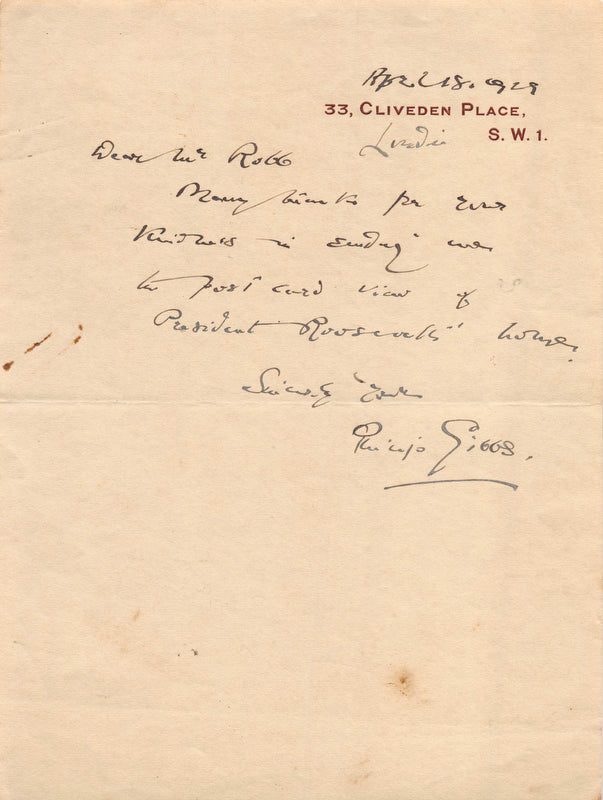 April 18. 1929
33, CLIVEDEN PLACE,
S. W. 1.
London
Dear Mr Robb
Many thanks for your
kindness in sending me
the post card view of
President Roosevelt's house.
Sincerely yours
Philip Gibbs.